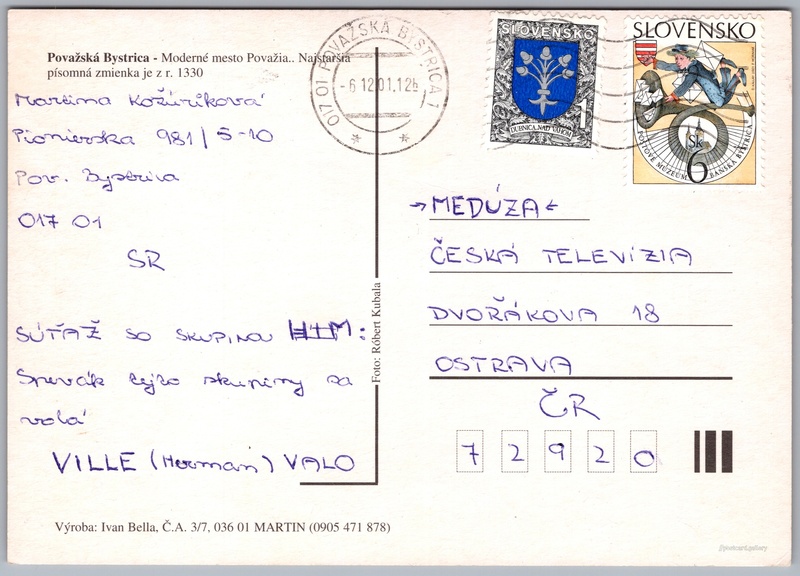 Považská Bystrica - Moderné mesto Považia.. Najstaršia
písomná zmienka je z r. 1330
Martina Kožúriková
Pionierska 981/5-10
Pov. Bystrica
017 01
SR
SÚŤAŽ SO SKUPINOU HIM:
Spevák tejto skupiny sa
volá
VILLE (Herman) VALO
Výroba: Ivan Bella, Č.A. 3/7, 036 01 MARTIN (0905 471 878)
Foto: Róbert Kubala
017 01 POVAŽSKÁ BYSTRICA 1
-6.12.01.12
SLOVENSKO
1
DUBNICA NAD VÁHOM
SLOVENSKO
6 Sk
POŠTOVÉ MÚZEUM BANSKÁ BYSTRICA
→MEDÚZA←
ČESKÁ TELEVÍZIA
DVOŘÁKOVA 18
OSTRAVA
ČR
7 2 9 2 0